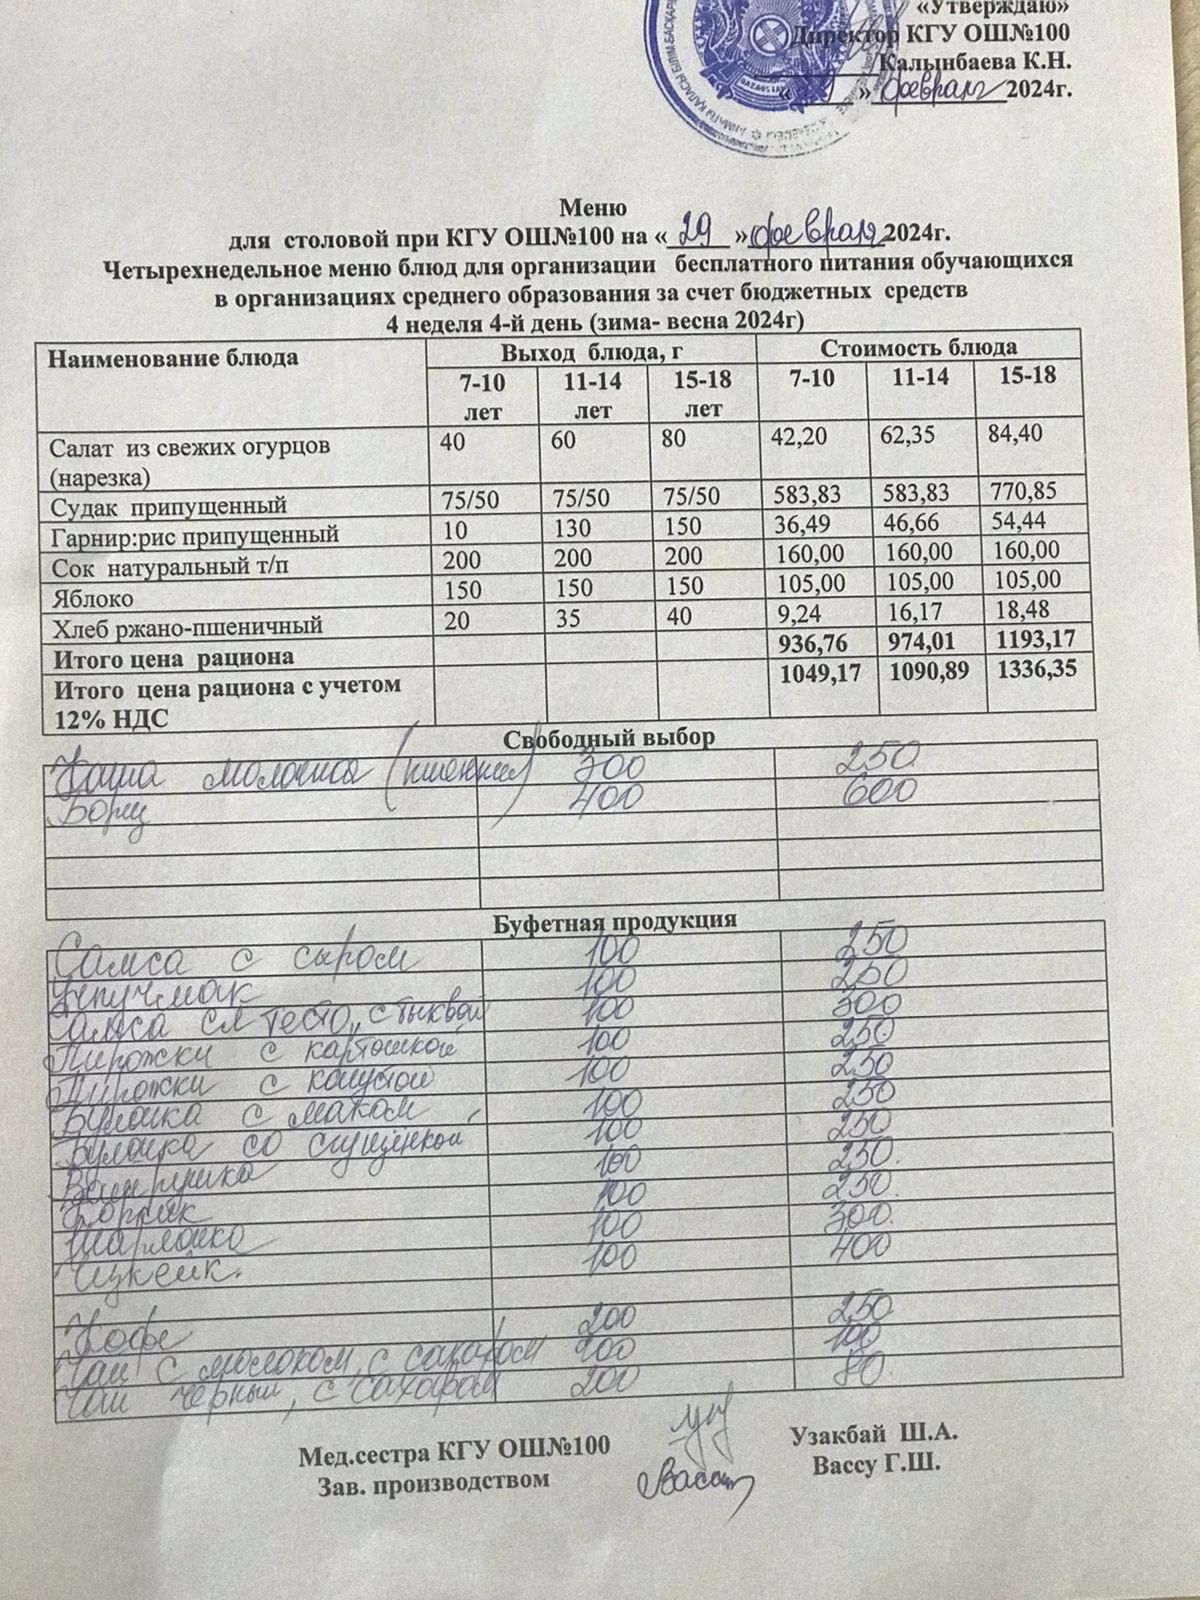 «Утверждаю»
Директор КГУ ОШ№100
Калынбаева К.Н.
« » февраля 2024г.
QAZAQSTAN
Меню
для столовой при КГУ ОШ№100 на « 29 » февраля 2024г.
Четырехнедельное меню блюд для организации бесплатного питания обучающихся
в организациях среднего образования за счет бюджетных средств
4 неделя 4-й день (зима- весна 2024г)
Наименование блюда Выход блюда, г Стоимость блюда
7-10 лет 11-14 лет 15-18 лет 7-10 11-14 15-18
Салат из свежих огурцов (нарезка) 40 60 80 42,20 62,35 84,40
Судак припущенный 75/50 75/50 75/50 583,83 583,83 770,85
Гарнир:рис припущенный 10 130 150 36,49 46,66 54,44
Сок натуральный т/п 200 200 200 160,00 160,00 160,00
Яблоко 150 150 150 105,00 105,00 105,00
Хлеб ржано-пшеничный 20 35 40 9,24 16,17 18,48
Итого цена рациона 936,76 974,01 1193,17
Итого цена рациона с учетом 12% НДС 1049,17 1090,89 1336,35
Свободный выбор
Каша молочная 300 250
Борщ 400 600
Буфетная продукция
Самса с сыром 100 250
Эчпучмак 100 250
Самса сл тесто, с тыквой 100 300
Пирожки с картошкой 100 250
Пирожки с капустой 100 250
Булочка с маком 100 250
Булочка со сгущенкой 100 250
Ватрушка 100 250
Коржик 100 250
Шарлотка 100 300
Чизкейк 100 400
Кофе 200 250
Чай с молоком, с сахаром 200 100
Чай черный, с сахаром 200 80
Мед.сестра КГУ ОШ№100 Узакбай Ш.А.
Зав. производством Вассу Г.Ш.